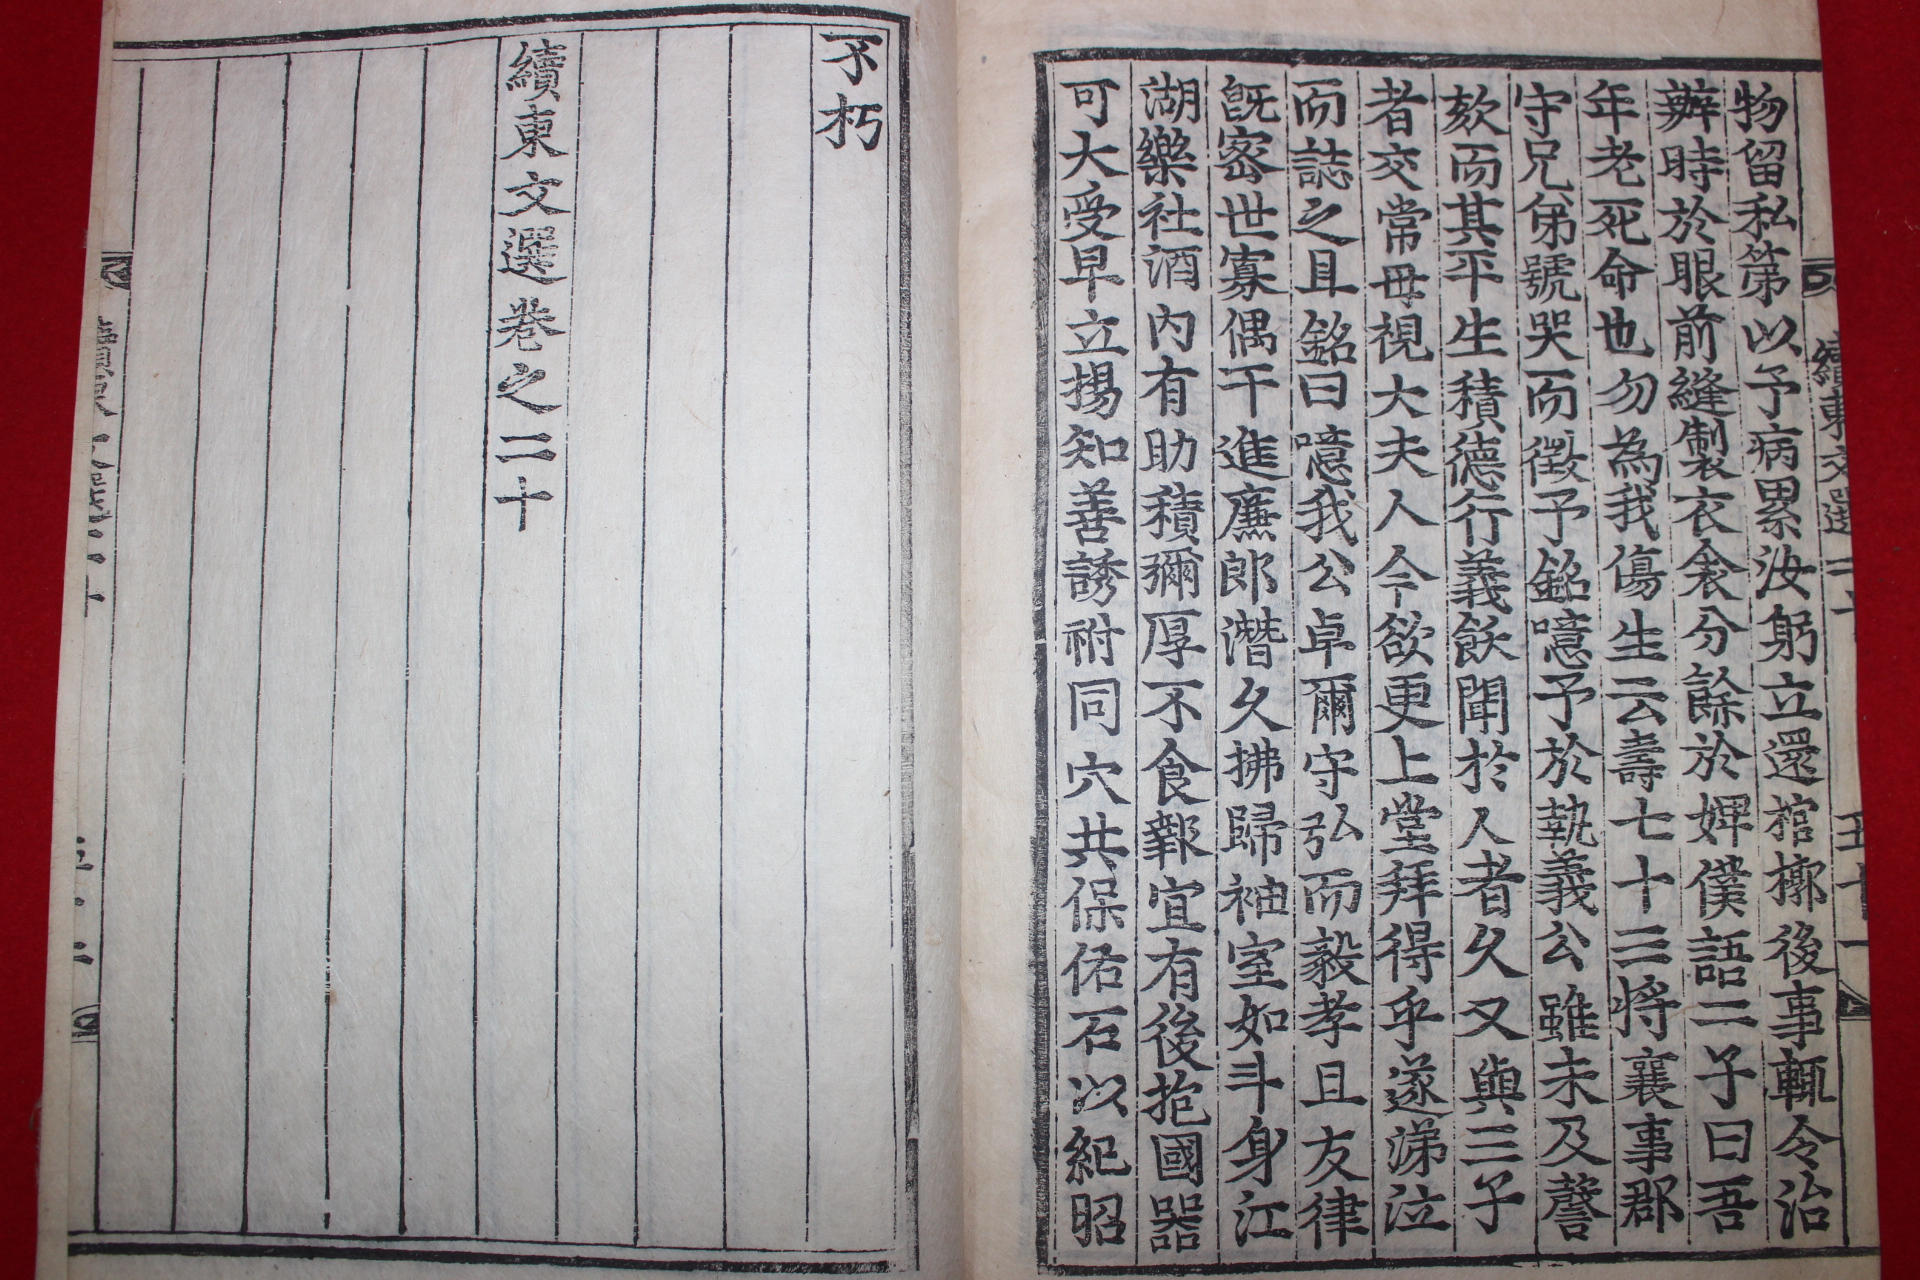 物留私第以予病累汝躬立還棺槨後事輒令治
辦時於眼前縫製衣衾分餘於婢僕語二子曰吾
年老死命也勿為我傷生云壽七十三將襄事郡
守兄弟號哭而徵予銘噫予於執義公雖未及謦
欬而其平生積德行義飫聞於人者久又與三子
者交常母視大夫人今欲更上堂拜得乎遂涕泣
而誌之且銘曰噫我公卓爾守弘而毅孝且友律
旣密世寡偶干進廉郎潛久拂歸袖室如斗身江
湖樂社酒內有助積彌厚不食報宜有後抱國器
可大受早立揚知善誘祔同穴共保佑石以紀昭
不朽
續東文選卷之二十
續東文選 二十
五十一